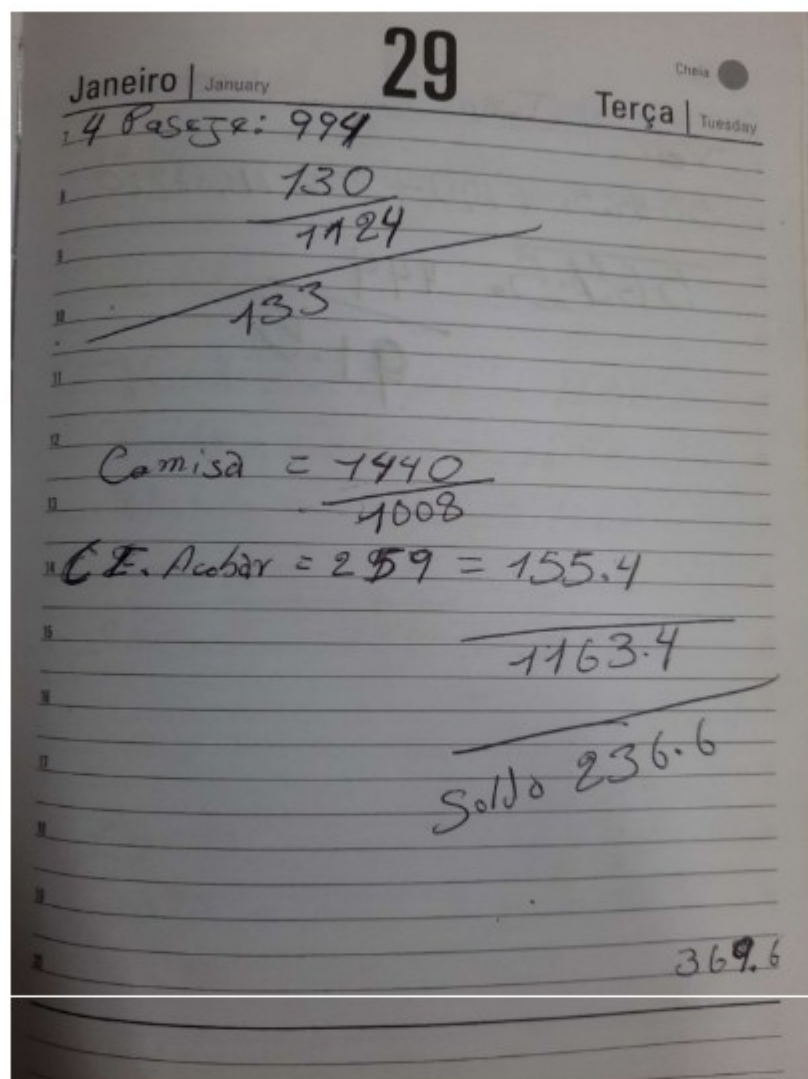 29
Cheia
Janeiro | January
Terça | Tuesday
7 4 Paseje: 994
8 130
9 1124
10 133
11
12
Camisa = 1440
13 1008
14 CE. Acobar = 259 = 155.4
15 1163.4
16
17 Soldo 236.6
18
19
20 369.6